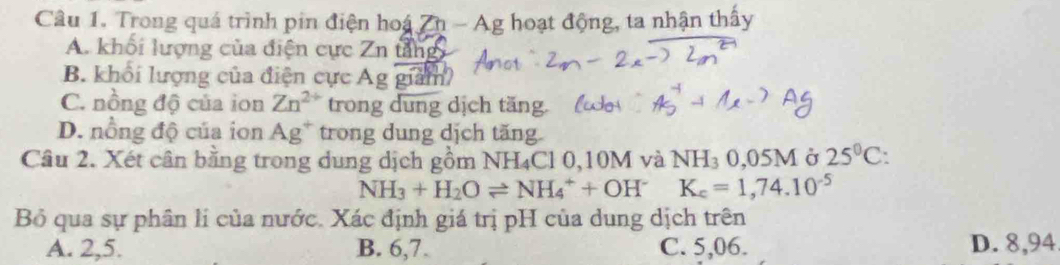 Câu 1. Trong quá trình pin điện hoá Zn – Ag hoạt động, ta nhận thấy
A. khối lượng của điện cực Zn tăng.
Anot: Zn - 2e -> Zn²⁺
B. khối lượng của điện cực Ag giảm
C. nồng độ của ion Zn²⁺ trong dung dịch tăng.
Ag⁺ + 1e -> Ag
D. nồng độ của ion Ag⁺ trong dung dịch tăng.
Câu 2. Xét cân bằng trong dung dịch gồm NH₄Cl 0,10M và NH₃ 0,05M ở 25⁰C:
NH₃ + H₂O ⇌ NH₄⁺ + OH⁻ K꜀ = 1,74.10⁻⁵
Bỏ qua sự phân li của nước. Xác định giá trị pH của dung dịch trên
A. 2,5. B. 6,7. C. 5,06. D. 8,94.